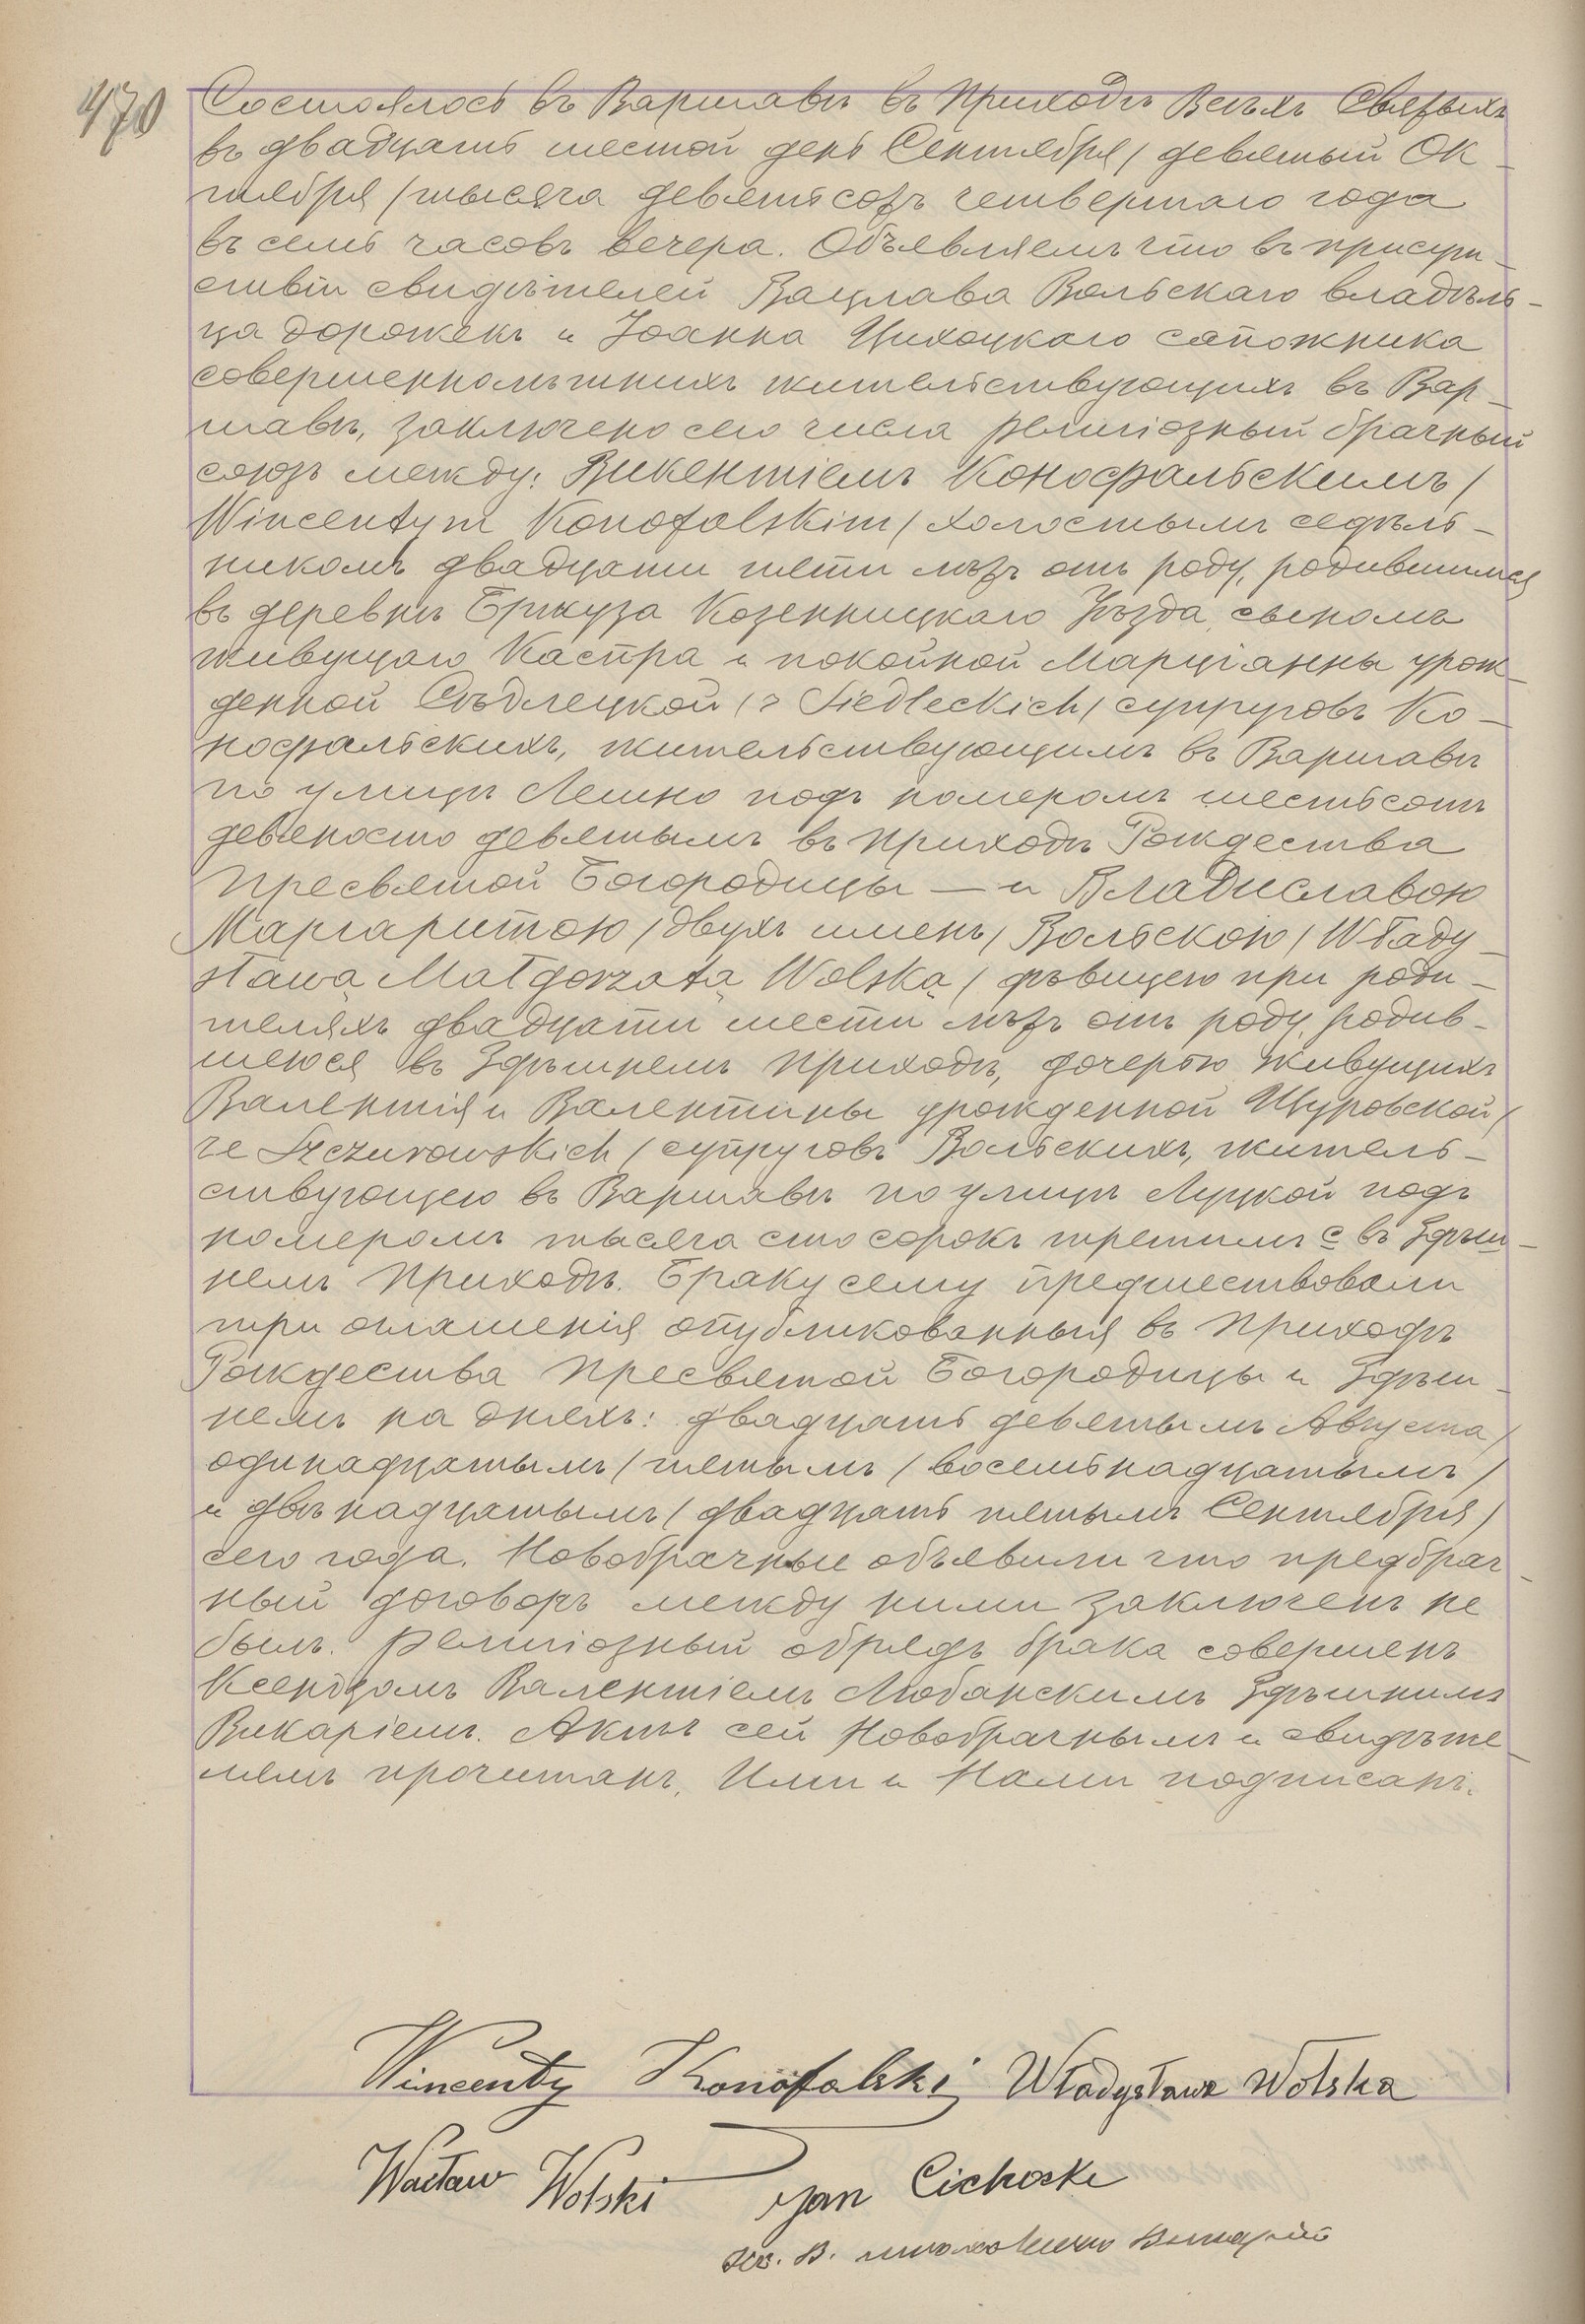 470
Состоялось въ Варшавѣ въ Приходѣ Всѣхъ Святыхъ
въ двадцать шестой день Сентября / девятый Ок-
тября / тысяча девятьсотъ четвертаго года
въ семь часовъ вечера. Объявляемъ что въ присут-
ствіи свидѣтелей Вацлава Вольскаго владѣль-
ца дорожекъ и Іоанна Цихоцкаго сапожника
совершеннолѣтнихъ жительствующихъ въ Вар-
шавѣ, заключено сего числа религіозный брачный
союзъ между: Викентіемъ Конофальскимъ /
Wincentym Konofalskim / холостымъ седѣль-
никомъ двадцати пяти лѣтъ отъ роду, родившимся
въ деревнѣ Бржуза Козеницкаго Уѣзда, сыномъ
живущаго Каспра и покойной Марціанны урож-
денной Сѣдлецкой / z Siedleckich / супруговъ Ко-
нофальскихъ, жительствующимъ въ Варшавѣ
по улицѣ Лешно подъ номеромъ шестьсотъ
девяносто девятымъ въ Приходѣ Рождества
Пресвятой Богородицы — и Владиславою
Маргаритою / двухъ именъ / Вольскою / Włady-
sławą Małgorzatą Wolską / дѣвицею при роди-
теляхъ двадцати шести лѣтъ отъ роду, родив-
шеюся въ Здѣшнемъ Приходѣ, дочерью живущихъ
Валентія и Валентины урожденной Щуровской /
ze Szczurowskich / супруговъ Вольскихъ, житель-
ствующею въ Варшавѣ по улицѣ Луцкой подъ
номеромъ тысяча сто сорокъ третимъ с въ Здѣш-
немъ Приходѣ. Браку сему предшествовали
три оглашенія опубликованныя въ Приходѣ
Рождества Пресвятой Богородицы и Здѣш-
немъ на дняхъ: двадцать девятымъ Августа /
одинадцатымъ / пятымъ / восемьнадцатымъ /
и двѣнадцатымъ / двадцать пятымъ Сентября /
сего года. Новобрачные объявили что предбрач-
ный договоръ между ними заключенъ не
былъ. Религіозный обрядъ брака совершенъ
Ксендзомъ Валентіемъ Любанскимъ Здѣшнимъ
Викаріемъ. Актъ сей Новобрачнымъ и свидѣте-
лямъ прочитанъ, Ими и Нами подписанъ.
Wincenty Konofalski Władysława Wolska
Wacław Wolski Jan Cichocki
Кс. В.